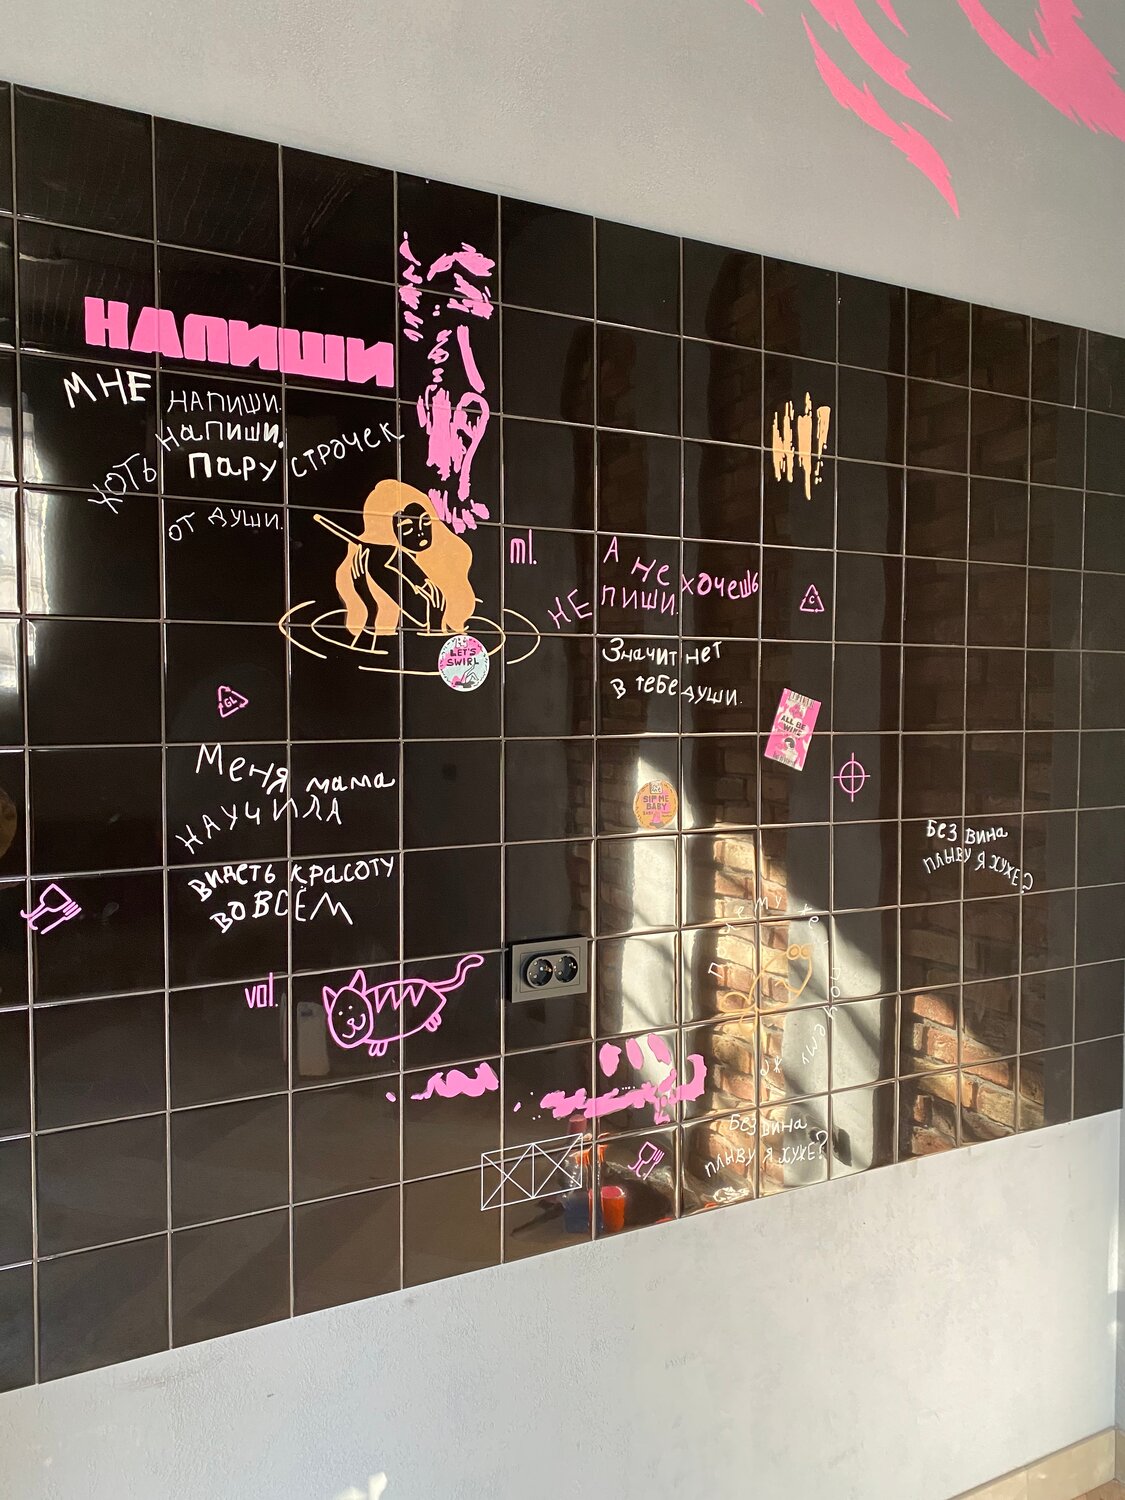 НАПИШИ
МНЕ
НАПИШИ.
НАПИШИ.
ХОТЬ ПАРУ СТРОЧЕК
ОТ ДУШИ.
ml.
А НЕ ХОЧЕШЬ
НЕ ПИШИ.
C
Значит нет
в тебе души.
LET'S
SWIRL
GL
ALL BE
WINE
Меня мама
НАУЧИЛА
ВИДЕТЬ КРАСОТУ
ВО ВСЁМ
SIP ME
BABY
БЕЗ вина
ПЛЫВУ Я ХУЖЕ?
vol.
почему
почему
Без вина
ПЛЫВУ Я ХУЖЕ?